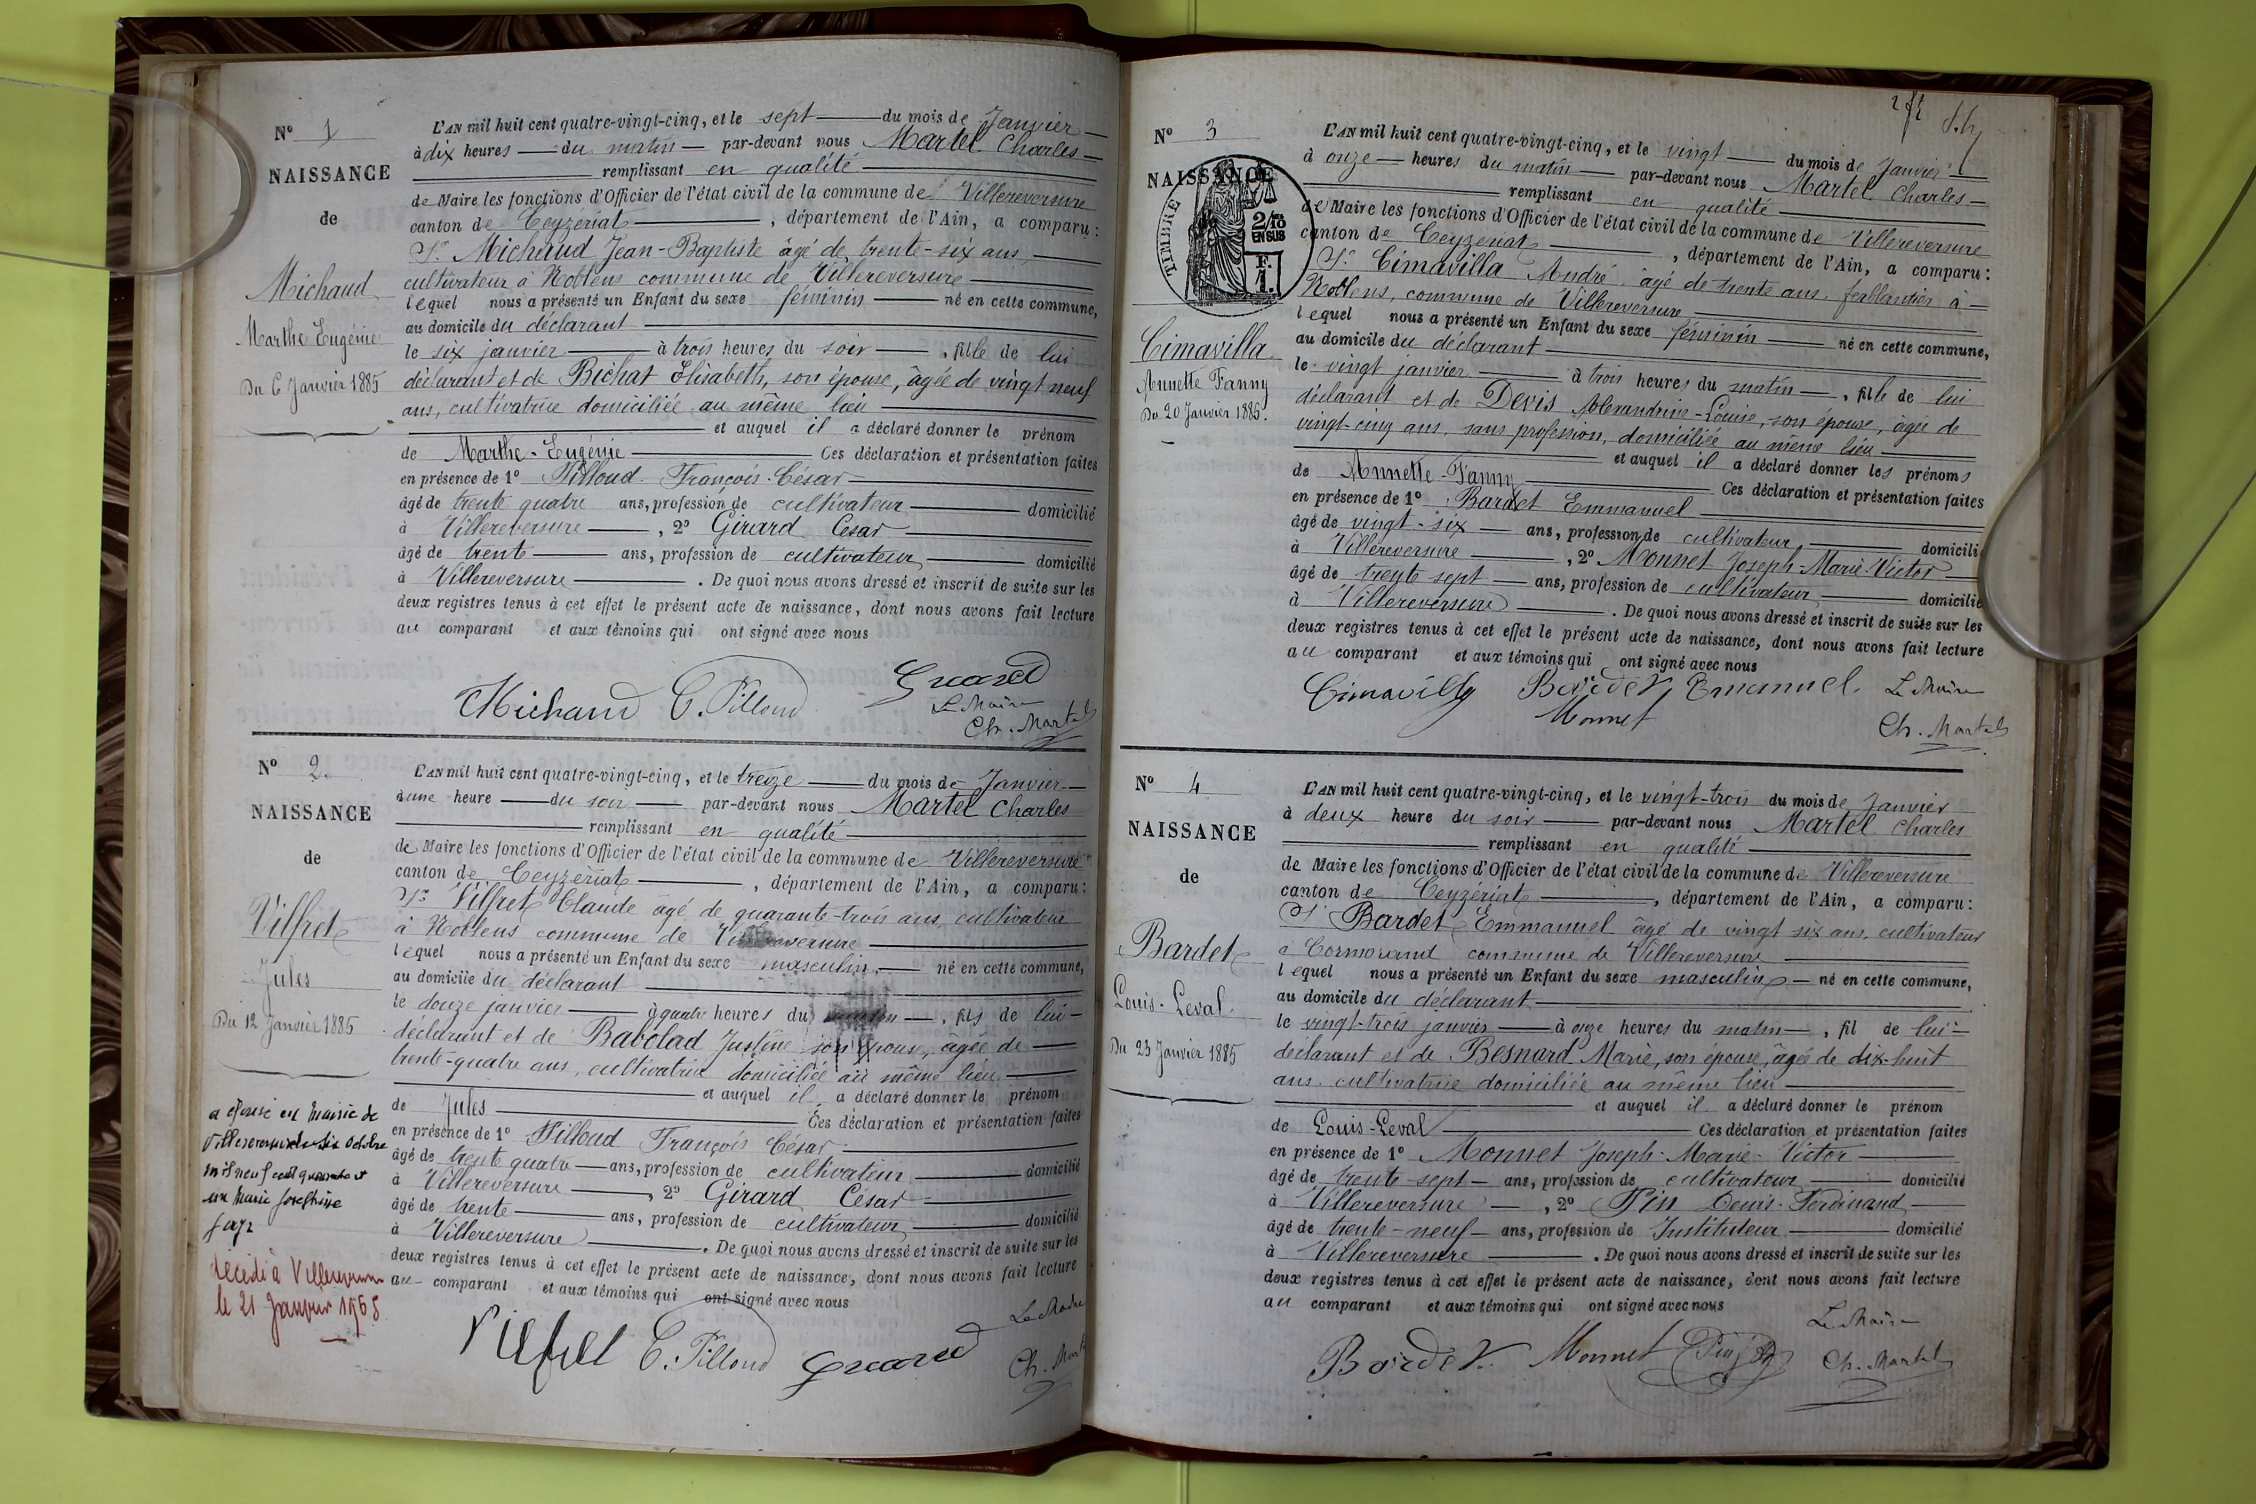 N° 1
NAISSANCE
de
Michaud
Marthe Eugénie
Du 6 Janvier 1885
L'AN mil huit cent quatre-vingt-cinq, et le sept du mois de Janvier
à dix heures du matin par-devant nous Martel Charles
remplissant en qualité
de Maire les fonctions d'Officier de l'état civil de la commune de Villereversure
canton de Ceyzeriat, département de l'Ain, a comparu:
Sr Michaud Jean-Baptiste âgé de trente-six ans
cultivateur à Noblens commune de Villereversure
lequel nous a présenté un Enfant du sexe féminin né en cette commune,
au domicile du déclarant
le six janvier à trois heures du soir, fille de lui
déclarant et de Bichat Elisabeth, son épouse, âgée de vingt neuf
ans, cultivatrice domiciliée au même lieu
et auquel il a déclaré donner le prénom
de Marthe-Eugénie Ces déclaration et présentation faites
en présence de 1° Pilloud François-César
âgé de trente quatre ans, profession de cultivateur domicilié
à Villereversure, 2° Girard César
âgé de trente ans, profession de cultivateur domicilié
à Villereversure. De quoi nous avons dressé et inscrit de suite sur les
deux registres tenus à cet effet le présent acte de naissance, dont nous avons fait lecture
au comparant et aux témoins qui ont signé avec nous
Michaud C. Pilloud Girard
Le Maire
Ch. Martel
N° 2.
NAISSANCE
de
Vilfret
Jules
Du 12 Janvier 1885
a épousé en mairie de
Villereversure le six octobre
mil neuf cent quarante et
un Marie Joséphine
décédé à Villereversure
le 21 Janvier 1965
L'AN mil huit cent quatre-vingt-cinq, et le treize du mois de Janvier
à une heure du soir par-devant nous Martel Charles
remplissant en qualité
de Maire les fonctions d'Officier de l'état civil de la commune de Villereversure
canton de Ceyzeriat, département de l'Ain, a comparu:
Sr Vilfret Claude âgé de quarante-trois ans, cultivateur
à Noblens commune de Villereversure
lequel nous a présenté un Enfant du sexe masculin né en cette commune,
au domicile du déclarant
le douze janvier à quatre heures du matin, fils de lui
déclarant et de Babolad Justine son épouse, âgée de
trente-quatre ans, cultivatrice domiciliée au même lieu
et auquel il a déclaré donner le prénom
de Jules Ces déclaration et présentation faites
en présence de 1° Pilloud François César
âgé de trente quatre ans, profession de cultivateur domicilié
à Villereversure, 2° Girard César
âgé de trente ans, profession de cultivateur domicilié
à Villereversure. De quoi nous avons dressé et inscrit de suite sur les
deux registres tenus à cet effet le présent acte de naissance, dont nous avons fait lecture
au comparant et aux témoins qui ont signé avec nous
Le Maire
C. Pilloud Girard Ch. Martel
N° 3
NAISSANCE
TIMBRE
2/10
EN SUS
F.
1.
Cimavilla
Annette Fanny
Du 20 Janvier 1885.
L'AN mil huit cent quatre-vingt-cinq, et le vingt du mois de Janvier
à onze heures du matin par-devant nous Martel Charles
remplissant en qualité
de Maire les fonctions d'Officier de l'état civil de la commune de Villereversure
canton de Ceyzeriat, département de l'Ain, a comparu:
Sr Cimavilla André âgé de trente ans, ferblantier à
Noblens, commune de Villereversure
lequel nous a présenté un Enfant du sexe féminin né en cette commune,
au domicile du déclarant
le vingt janvier à trois heures du matin, fille de lui
déclarant et de Devis Alexandrine-Louise, son épouse, âgée de
vingt-cinq ans, sans profession, domiciliée au même lieu
et auquel il a déclaré donner les prénoms
de Annette-Fanny Ces déclaration et présentation faites
en présence de 1° Bardet Emmanuel
âgé de vingt-six ans, profession de cultivateur domicilié
à Villereversure, 2° Monnet Joseph-Marie-Victor
âgé de trente sept ans, profession de cultivateur domicilié
à Villereversure. De quoi nous avons dressé et inscrit de suite sur les
deux registres tenus à cet effet le présent acte de naissance, dont nous avons fait lecture
au comparant et aux témoins qui ont signé avec nous
Cimavilla Bardet Emanuel. Le Maire
Monnet Ch. Martel
N° 4
NAISSANCE
de
Bardet
Louis-Leval
Du 23 Janvier 1885
L'AN mil huit cent quatre-vingt-cinq, et le vingt-trois du mois de Janvier
à deux heure du soir par-devant nous Martel Charles
remplissant en qualité
de Maire les fonctions d'Officier de l'état civil de la commune de Villereversure
canton de Ceyzériat, département de l'Ain, a comparu:
Sr Bardet Emmanuel âgé de vingt six ans, cultivateur
à Cormorand commune de Villereversure
lequel nous a présenté un Enfant du sexe masculin né en cette commune,
au domicile du déclarant
le vingt-trois janvier à onze heures du matin, fil de lui
déclarant et de Besnard Marie, son épouse, âgée de dix-huit
ans, cultivatrice domiciliée au même lieu
et auquel il a déclaré donner le prénom
de Louis-Leval Ces déclaration et présentation faites
en présence de 1° Monnet Joseph-Marie-Victor
âgé de trente-sept ans, profession de cultivateur domicilié
à Villereversure, 2° Pin Denis-Ferdinand
âgé de trente-neuf ans, profession de Instituteur domicilié
à Villereversure. De quoi nous avons dressé et inscrit de suite sur les
deux registres tenus à cet effet le présent acte de naissance, dont nous avons fait lecture
au comparant et aux témoins qui ont signé avec nous
Le Maire
Bardet Monnet Pin Ch. Martel